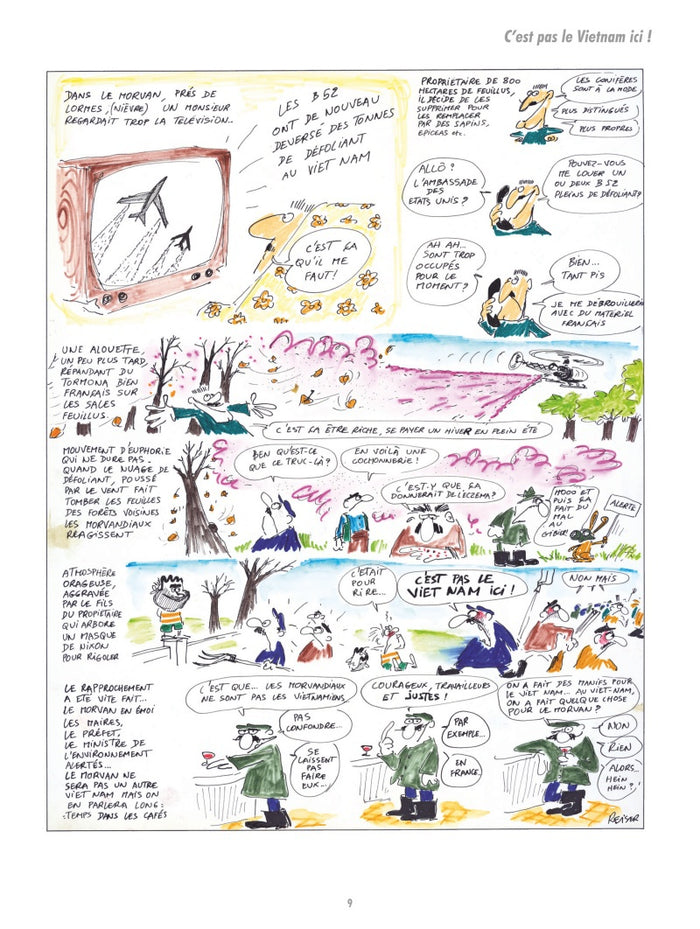 C'est pas le Vietnam ici !
DANS LE MORVAN, PRÉS DE
LORMES, (NIÈVRE) UN MONSIEUR
REGARDAIT TROP LA TÉLÉVISION..
LES B52
ONT DE NOUVEAU
DEVERSÉ DES TONNES
DE DÉFOLIANT
AU VIET NAM
C'EST ÇA
QU'IL ME
FAUT!
PROPRIETAIRE DE 800
HECTARES DE FEUILLUS,
IL DÉCIDE DE LES
SUPPRIMER POUR
LES REMPLACER
PAR DES SAPINS,
EPICEAS etc.
LES CONIFÈRES
SONT À LA MODE
PLUS DISTINGUÉS
PLUS PROPRES
ALLÔ?
L'AMBASSADE
DES
ETATS UNIS?
POUVEZ-VOUS
ME LOUER UN
OU DEUX B52
PLEINS DE DÉFOLIANT?
AH AH...
SONT TROP
OCCUPÉS
POUR LE
MOMENT?
BIEN...
TANT PIS
JE ME DÉBROUILLERAI
AVEC DU MATÉRIEL
FRANÇAIS
UNE ALOUETTE,
UN PEU PLUS TARD,
RÉPANDANT DU
TORMONA BIEN
FRANÇAIS SUR
LES SALES
FEUILLUS.
C'EST ÇA ÊTRE RICHE, SE PAYER UN HIVER EN PLEIN ÉTÉ
MOUVEMENT D'EUPHORIE
QUI NE DURE PAS.
QUAND LE NUAGE DE
DÉFOLIANT, POUSSÉ
PAR LE VENT FAIT
TOMBER LES FEUILLES
DES FORÊTS VOISINES
LES MORVANDIAUX
RÉAGISSENT
BEN QU'EST-CE
QUE CE TRUC-LÀ?
EN VOILÀ UNE
COCHONNERIE!
C'EST-Y QUE ÇA
DONNERAIT DE L'ECZEMA?
HOOO ET
PUIS ÇA
FAIT DU
MAL
AU
GIBIER!
ALERTE!
ATMOSPHÈRE
ORAGEUSE,
AGGRAVÉE
PAR LE FILS
DU PROPIETAIRE
QUI ARBORE
UN MASQUE
DE NIXON
POUR RIGOLER
C'ETAIT
POUR
RIRE...
C'EST PAS LE
VIET NAM ICI!
NON MAIS
LE RAPPROCHEMENT
A ETÉ VITE FAIT...
LE MORVAN EN ÉMOI
LES MAIRES,
LE PRÉFET,
LE MINISTRE DE
L'ENVIRONNEMENT
ALERTÉS...
LE MORVAN NE
SERA PAS UN AUTRE
VIET NAM MAIS ON
EN PARLERA LONG:
:TEMPS DANS LES CAFÉS
C'EST QUE... LES MORVANDIAUX
NE SONT PAS LES VIETNAMIENS,
PAS
CONFONDRE...
SE
LAISSENT
PAS
FAIRE
EUX...
COURAGEUX, TRAVAILLEURS
ET JUSTES!
PAR
EXEMPLE...
EN
FRANCE,
ON A FAIT DES MANIFS POUR
LE VIET NAM... AU VIET-NAM,
ON A FAIT QUELQUE CHOSE
POUR LE MORVAN?
NON
RIEN
ALORS..
HEIN
HEIN?
REISER
9